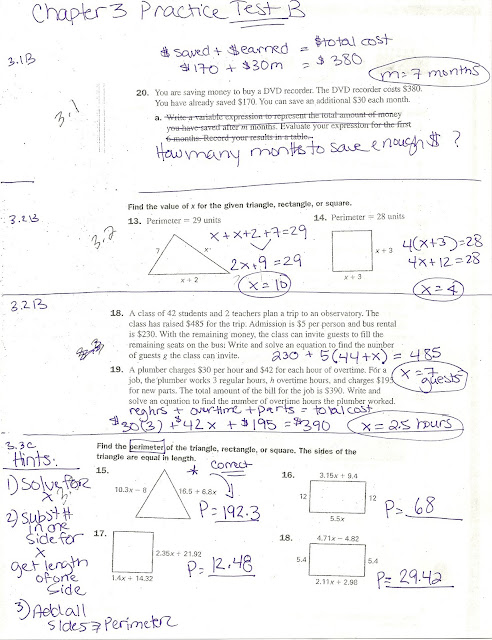 Chapter 3 Practice Test B
3.1B
$ saved + $ earned = $total cost
$170 + $30m = $380
m = 7 months
3.1
20. You are saving money to buy a DVD recorder. The DVD recorder costs $380.
You have already saved $170. You can save an additional $30 each month.
a. Write a variable expression to represent the total amount of money
you have saved after m months. Evaluate your expression for the first
6 months. Record your results in a table.
How many months to save enough $ ?
3.2B
3.2
Find the value of x for the given triangle, rectangle, or square.
13. Perimeter = 29 units
7
x
x + 2
x + x + 2 + 7 = 29
2x + 9 = 29
x = 10
14. Perimeter = 28 units
x + 3
x + 3
4(x+3) = 28
4x + 12 = 28
x = 4
3.2B
18. A class of 42 students and 2 teachers plan a trip to an observatory. The
class has raised $485 for the trip. Admission is $5 per person and bus rental
is $230. With the remaining money, the class can invite guests to fill the
remaining seats on the bus. Write and solve an equation to find the number
of guests g the class can invite.
230 + 5(44+x) = 485
x = 7 guests
19. A plumber charges $30 per hour and $42 for each hour of overtime. For a
job, the plumber works 3 regular hours, h overtime hours, and charges $195
for new parts. The total amount of the bill for the job is $390. Write and
solve an equation to find the number of overtime hours the plumber worked.
reg hrs + overtime + parts = total cost
$30(3) + $42x + $195 = $390
x = 2.5 hours
3.3C
Hints:
1) Solve for
x
2) Subst #
in one
side for
x
get length
of one
side
3) Add all
sides = Perimeter
Find the perimeter of the triangle, rectangle, or square. The sides of the
triangle are equal in length.
15.
10.3x – 8
16.5 + 6.8x
* Correct
P = 192.3
16.
3.15x + 9.4
12
12
5.5x
P = 68
17.
2.35x + 21.92
1.4x + 14.32
P = 12.48
18.
4.71x – 4.82
5.4
5.4
2.11x + 2.98
P = 29.42